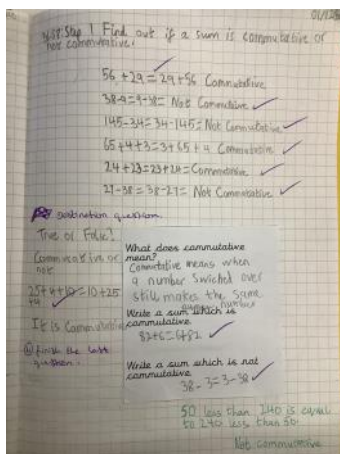 01/12
Step 1 Find out if a sum is commutative or
not commutative.
56 + 29 = 29 + 56 Commutative
38-9=9-38= Not Commutative
145-34=34-145= Not Commutative
65+4+3=3+65+4 Commutative
24+23=23+24=Commutative
27-38=38-27= Not Commutative
question
True or False?
Commutative or
not
=10+25
It is Commutative
finish the last
question.
What does commutative
mean?
Commutative means when
a number swiched over
still makes the same
number
Write a sum which is
commutative
82+6=6+82
Write a sum which is not
commutative
38-3=3-38
50 less than 240 is equal
to 240 less than 50.
Not commutative